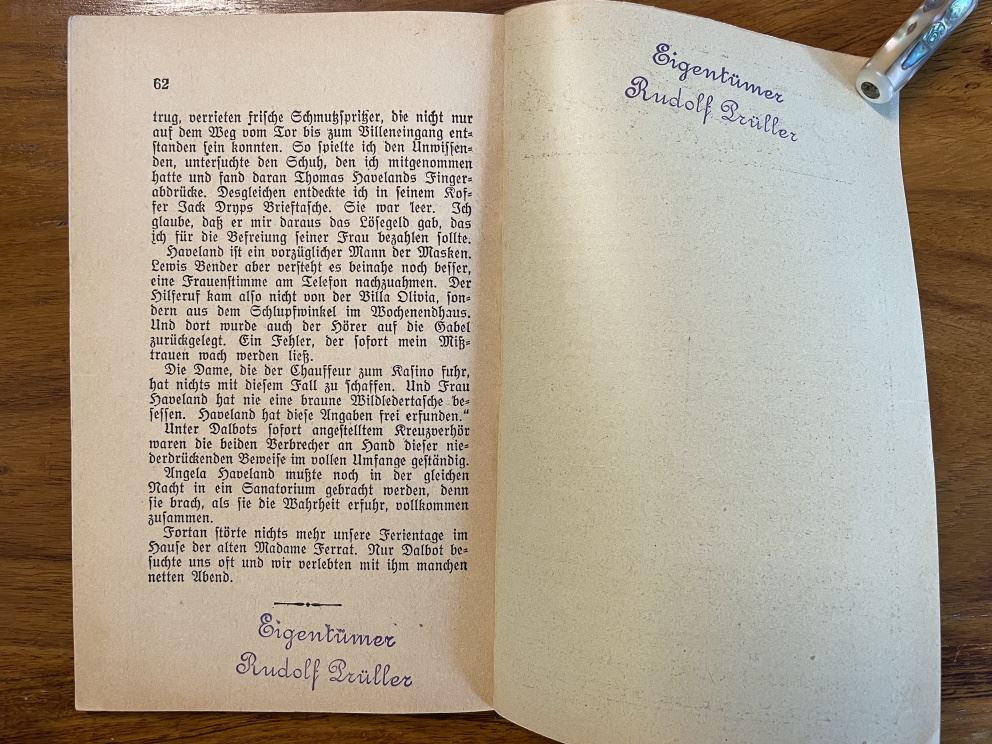 62
trug, verrieten frische Schmutzspritzer, die nicht nur
auf dem Weg vom Tor bis zum Villeneingang ent-
standen sein konnten. So spielte ich den Unwissen-
den, untersuchte den Schuh, den ich mitgenommen
hatte und fand daran Thomas Havelands Finger-
abdrücke. Desgleichen entdeckte ich in seinem Kof-
fer Jack Dryps Brieftasche. Sie war leer. Ich
glaube, daß er mir daraus das Lösegeld gab, das
ich für die Befreiung seiner Frau bezahlen sollte.
Haveland ist ein vorzüglicher Mann der Masken.
Lewis Bender aber versteht es beinahe noch besser,
eine Frauenstimme am Telefon nachzuahmen. Der
Hilferuf kam also nicht von der Villa Olivia, son-
dern aus dem Schlupfwinkel im Wochenendhaus.
Und dort wurde auch der Hörer auf die Gabel
zurückgelegt. Ein Fehler, der sofort mein Miß-
trauen wach werden ließ.
Die Dame, die der Chauffeur zum Kasino fuhr,
hat nichts mit diesem Fall zu schaffen. Und Frau
Haveland hat nie eine braune Wildledertasche be-
sessen. Haveland hat diese Angaben frei erfunden.“
Unter Dalbots sofort angestelltem Kreuzverhör
waren die beiden Verbrecher an Hand dieser nie-
derdrückenden Beweise im vollen Umfange geständig.
Angela Haveland mußte noch in der gleichen
Nacht in ein Sanatorium gebracht werden, denn
sie brach, als sie die Wahrheit erfuhr, vollkommen
zusammen.
Fortan störte nichts mehr unsere Ferientage im
Hause der alten Madame Ferrat. Nur Dalbot be-
suchte uns oft und wir verlebten mit ihm manchen
netten Abend.
Eigentümer
Rudolf Prüller
Eigentümer
Rudolf Prüller